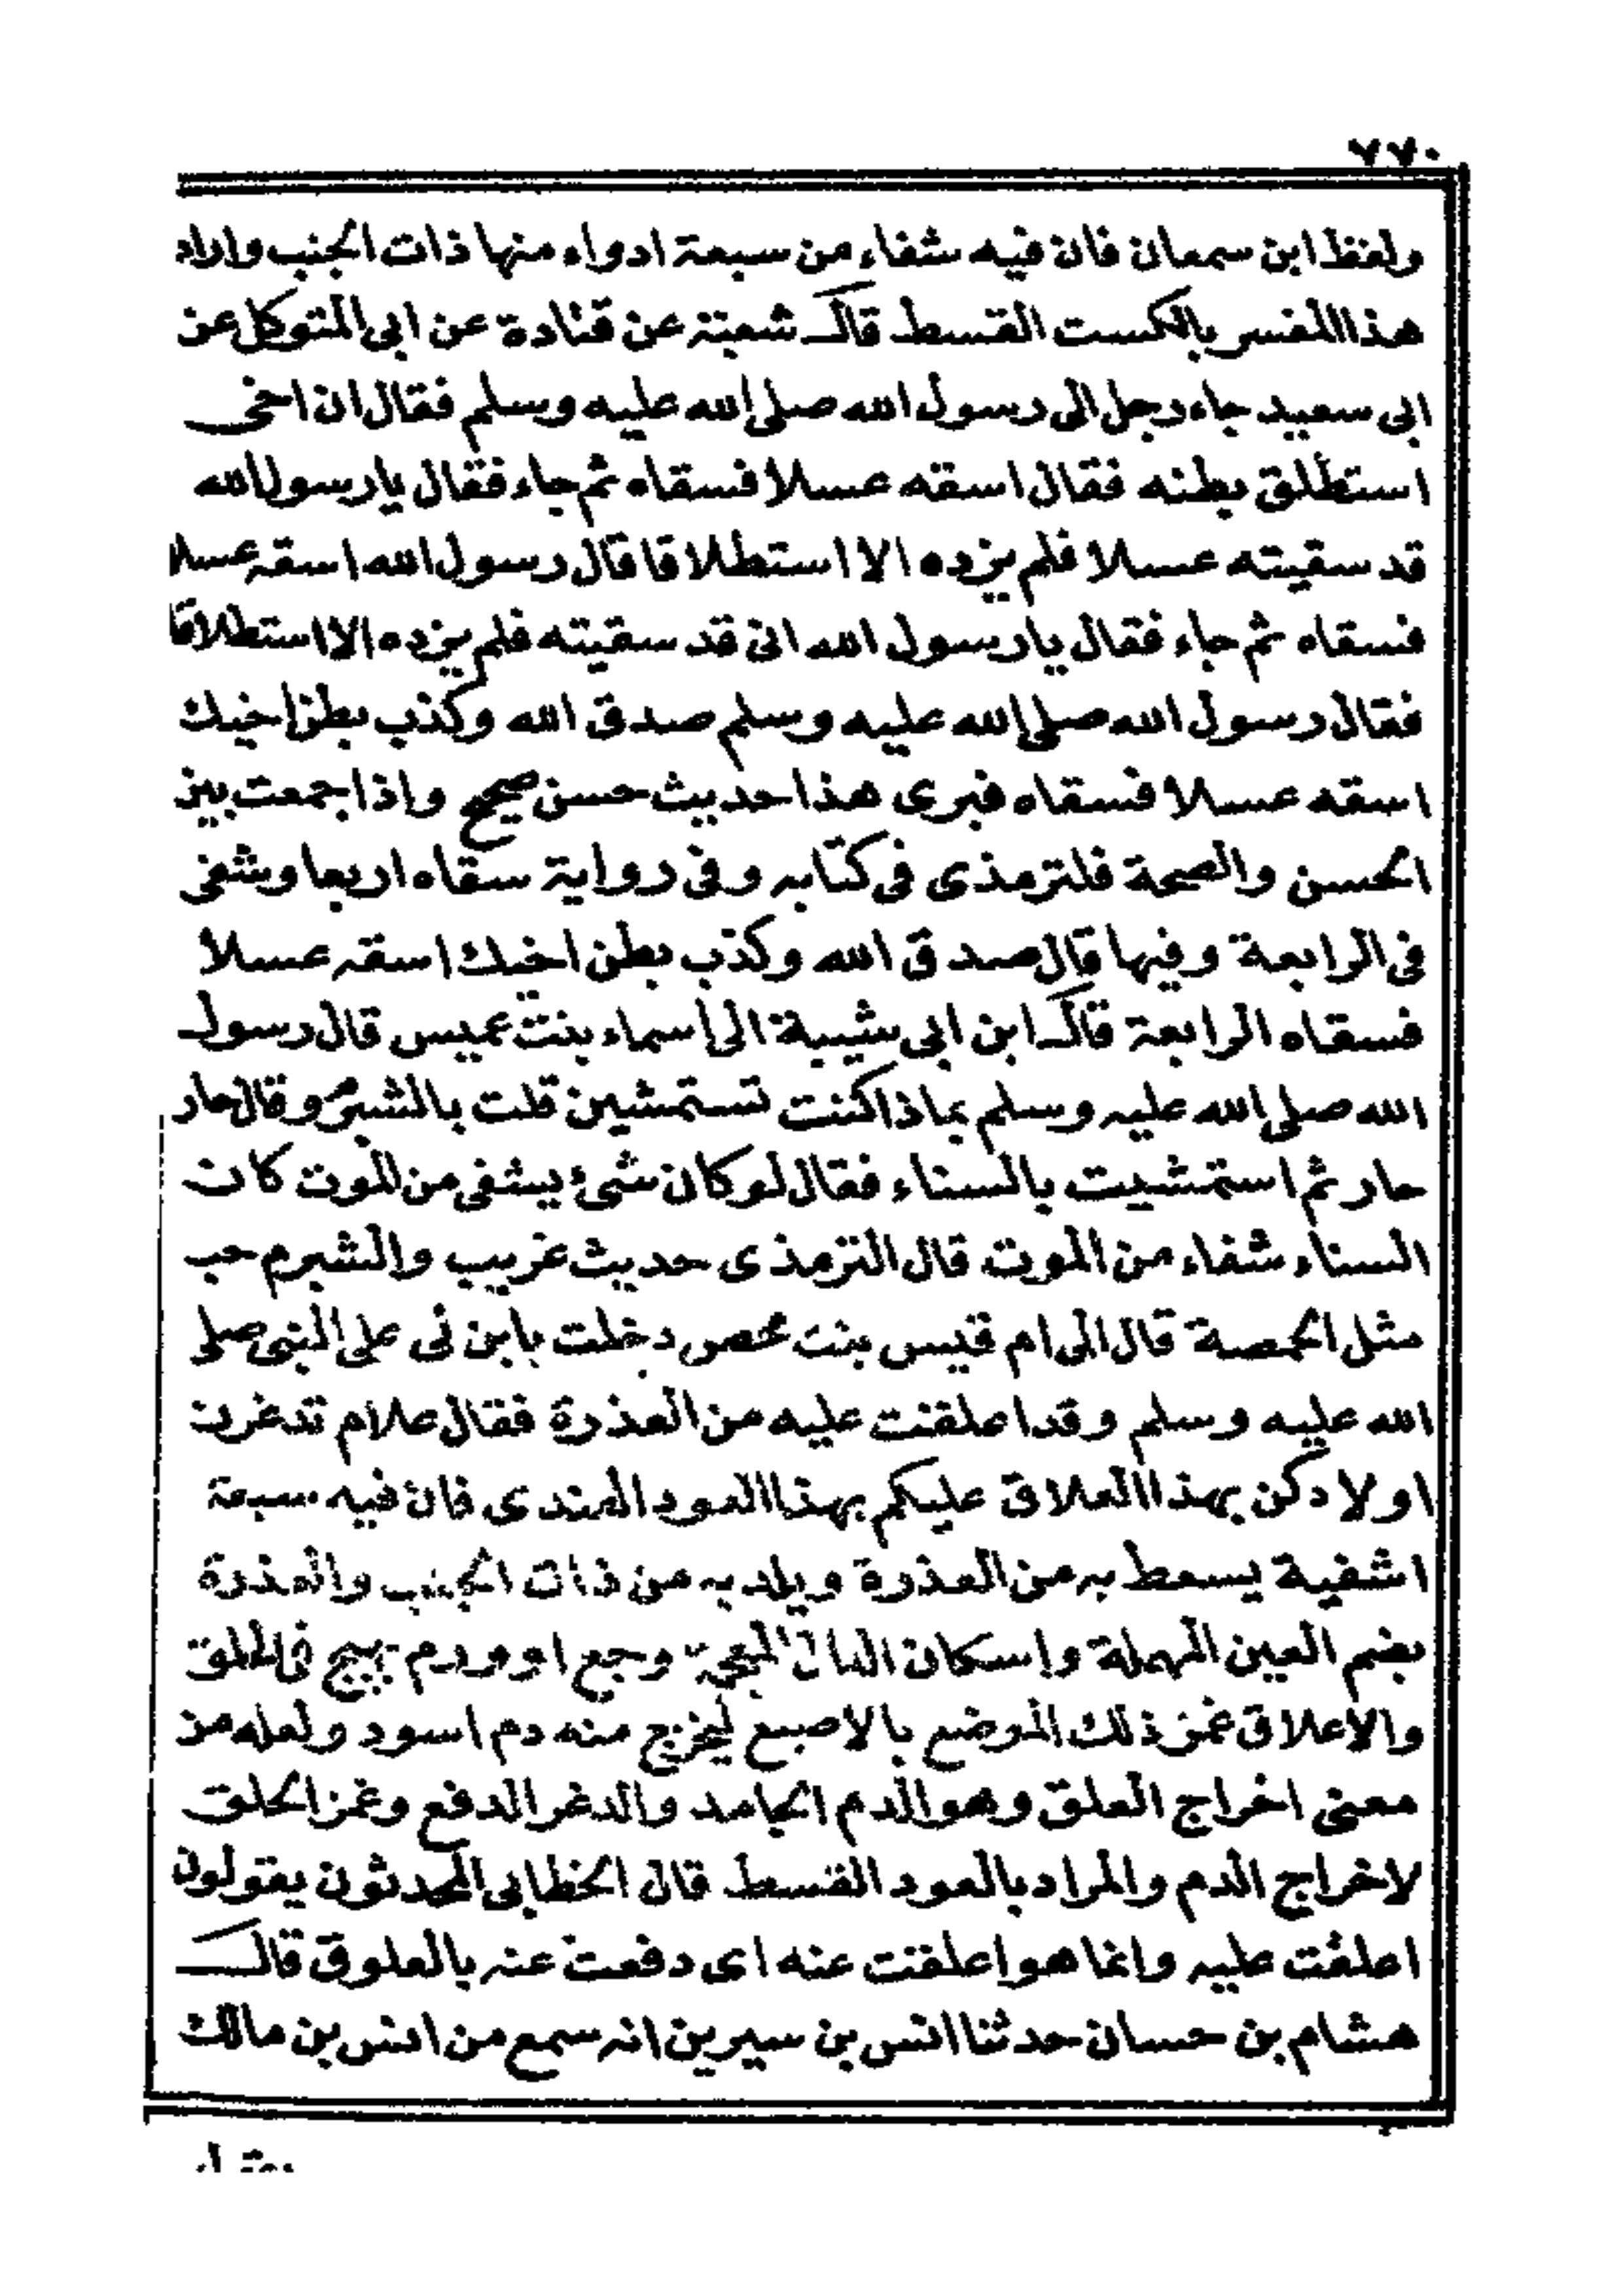 ٧٧٠
ولفظ ابن سمعان فان فيه شفاء من سبعة ادواء منها ذات الجنب واراد
هذا المفسر بالكست القسط قال شعبة عن قتادة عن ابى المتوكل عن
ابى سعيد جاء رجل الى رسول الله صلى الله عليه وسلم فقال ان اخى
استطلق بطنه فقال اسقه عسلا فسقاه ثم جاء فقال يا رسول الله
قد سقيته عسلا فلم يزده الا استطلاقا قال رسول الله اسقه عسلا
فسقاه ثم جاء فقال يا رسول الله انى قد سقيته فلم يزده الا استطلاقا
فقال رسول الله صلى الله عليه وسلم صدق الله وكذب بطن اخيك
اسقه عسلا فسقاه فبرى هذا حديث حسن صحيح واذا جمعت بين
الحسن والصحة فلترمذى فى كتابه وفى رواية سقاه اربعا وشفى
فى الرابعة وفيها قال صدق الله وكذب بطن اخيك اسقه عسلا
فسقاه الرابعة قال ابن ابى شيبة الى اسماء بنت عميس قال رسول
الله صلى الله عليه وسلم بماذا كنت تستمشين قلت بالشبرم وقال حار
حار ثم استمشيت بالسناء فقال لو كان شىء يشفى من الموت كان
السناء شفاء من الموت قال الترمذى حديث غريب والشبرم حب
مثل الحمصة قال الى ام قيس بنت محصن دخلت بابن لى على النبى صلى
الله عليه وسلم وقد اعلقت عليه من العذرة فقال علام تدغرن
اولادكن بهذا العلاق عليكم بهذا العود الهندى فان فيه سبعة
اشفية يسعط به من العذرة ويلد به من ذات الجنب والعذرة
بضم العين المهملة واسكان الذال المعجمة وجع او ورم يهيج فى الحلق
والاعلاق غمز ذلك الموضع بالاصبع ليخرج منه دم اسود ولعله من
معنى اخراج العلق وهو الدم الجامد والدغر الدفع وغمز الحلق
لاخراج الدم والمراد بالعود القسط قال الخطابى المحدثون يقولون
اعلقت عليه وانما هو اعلقت عنه اى دفعت عنه بالعلوق قال
هشام بن حسان حدثنا انس بن سيرين انه سمع من انس بن مالك